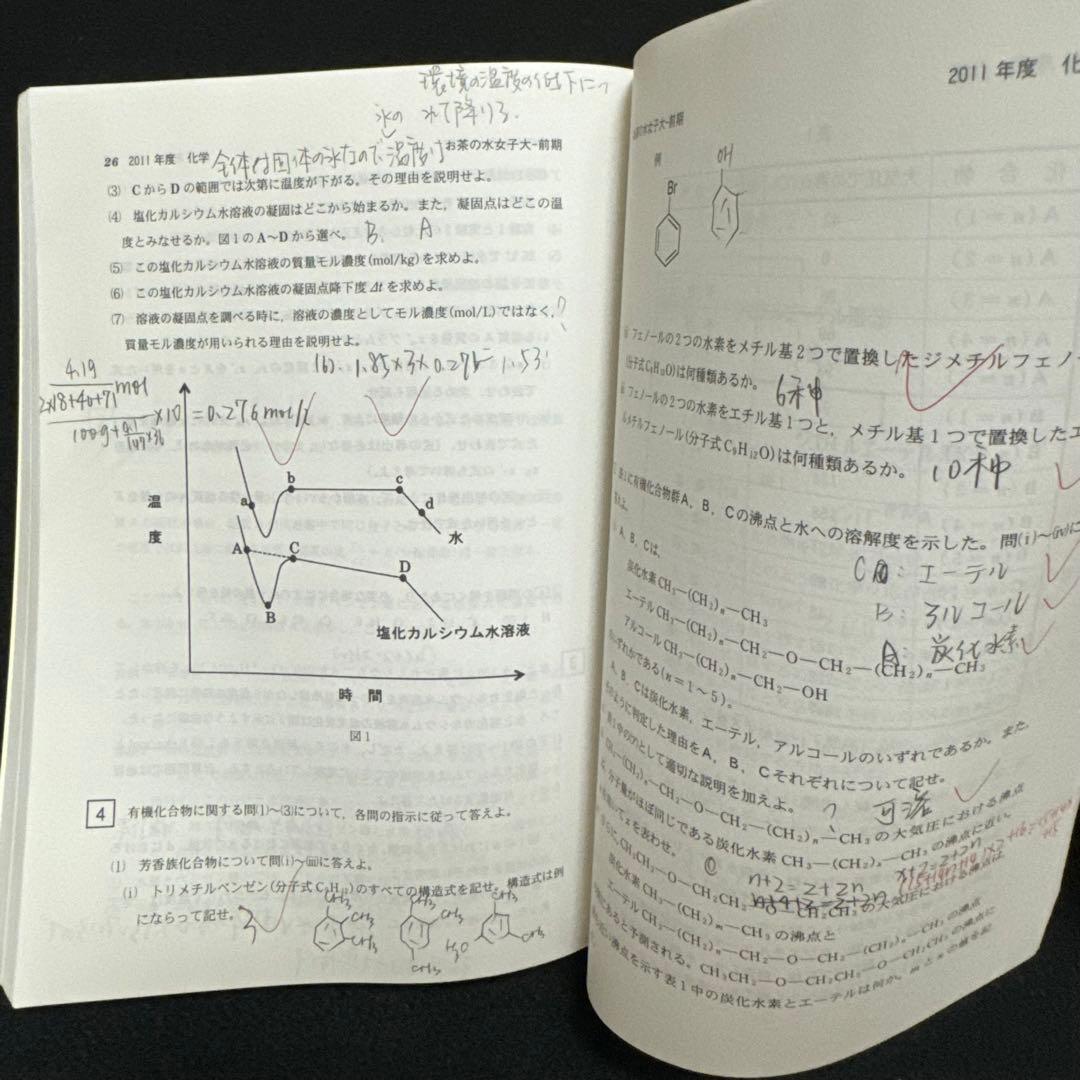 環境の温度の低下につ
氷の れて降りる.
26 2011年度 化学 お茶の水女子大-前期
全体は固体の氷なので温度は
(3) CからDの範囲では次第に温度が下がる。その理由を説明せよ。
(4) 塩化カルシウム水溶液の凝固はどこから始まるか。また,凝固点はどこの温
度とみなせるか。図1のA~Dから選べ。 B, A
(5) この塩化カルシウム水溶液の質量モル濃度(mol/kg)を求めよ。
(6) この塩化カルシウム水溶液の凝固点降下度Δtを求めよ。
(7) 溶液の凝固点を調べる時に,溶液の濃度としてモル濃度(mol/L)ではなく, ?
質量モル濃度が用いられる理由を説明せよ。
(6). 1.85×3×0.275 1.53
4.19
2×18+40+71 mol
100g+ ×10 =0.276mol/
温度
a
b
c
d
水
A
B
C
D
塩化カルシウム水溶液
時間
図1
4 有機化合物に関する問(1)~(3)について,各問の指示に従って答えよ。
(1) 芳香族化合物について問(i)~(iii)に答えよ。
(i) トリメチルベンゼン(分子式C₉H₁₂)のすべての構造式を記せ。構造式は例
にならって記せ。 3
CH₃ CH₃ CH₃
CH₃ CH₃ CH₃
H₃C CH₃ CH₃
2011年度 化
の水女子大-前期
例
Br
OH
フェノールの2つの水素をメチル基2つで置換したジメチルフェノ
(分子式C₈H₁₀O)は何種類あるか。 6種
フェノールの2つの水素をエチル基1つと,メチル基1つで置換したエ
ルメチルフェノール(分子式C₉H₁₂O)は何種類あるか。 10種
表1に有機化合物群A,B,Cの沸点と水への溶解度を示した。問(i)~(iv)に
えよ。
A,B,Cは,
C : エーテル
炭化水素 CH₃―(CH₂)ₙ―CH₃
B : アルコール
エーテル CH₃―(CH₂)ₙ―CH₂―O―CH₂―(CH₂)ₙ―CH₃
A : 炭化水素
アルコール CH₃―(CH₂)ₙ―CH₂―OH
のいずれかである(n=1~5)。
A,B,Cは炭化水素,エーテル,アルコールのいずれであるか。また,
のように判定した理由をA,B,Cそれぞれについて記せ。
表1中の(ア)として適切な説明を加えよ。 ? 可溶
CH₃―(CH₂)ₙ―CH₂―O―CH₂―(CH₂)ₙ―CH₃の大気圧における沸点
は,分子量がほぼ同じである炭化水素CH₃―(CH₂)ₓ―CH₃の沸点に近い。
を用いてxをあわせ。
n+2=2+2n
x+2=2+2n
炭化水素 CH₃―(CH₂)ₘ―CH₃の沸点と
エーテル CH₃―(CH₂)ₙ―CH₂―O―CH₂―(CH₂)ₙ―CH₃の沸点
にあると予測される。CH₃CH₂―O―CH₂CH₂―O―CH₂CH₃の沸点に
近い沸点を示す表1中の炭化水素とエーテルは何か。mとnの値を記